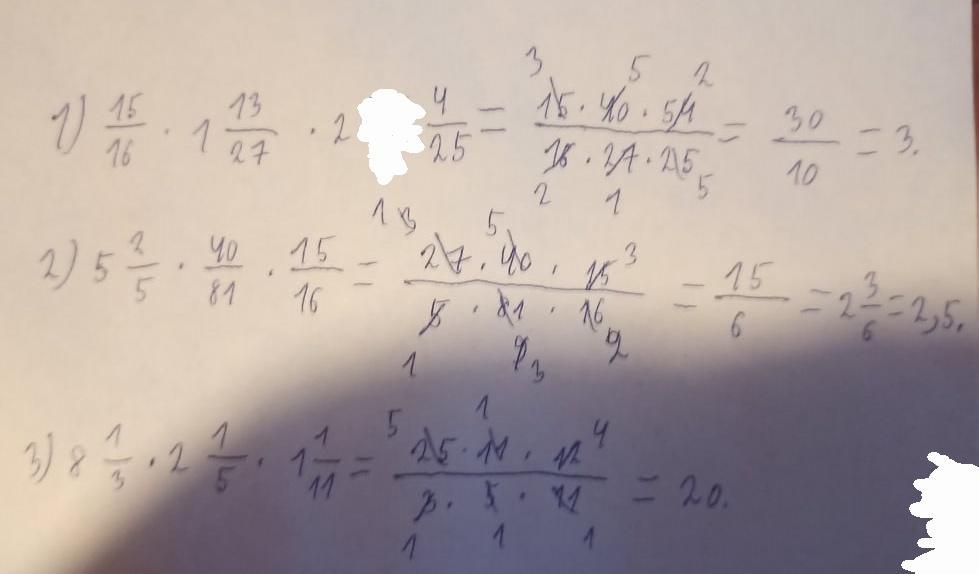 1) 15/16 · 1 13/27 · 2 4/25 = (15 · 40 · 54)/(16 · 27 · 25) = 30/10 = 3.
2) 5 2/5 · 40/81 · 15/16 = (27 · 40 · 15)/(5 · 81 · 16) = 15/6 = 2 3/6 = 2,5.
3) 8 1/3 · 2 1/5 · 1 1/11 = (25 · 11 · 12)/(3 · 5 · 11) = 20.